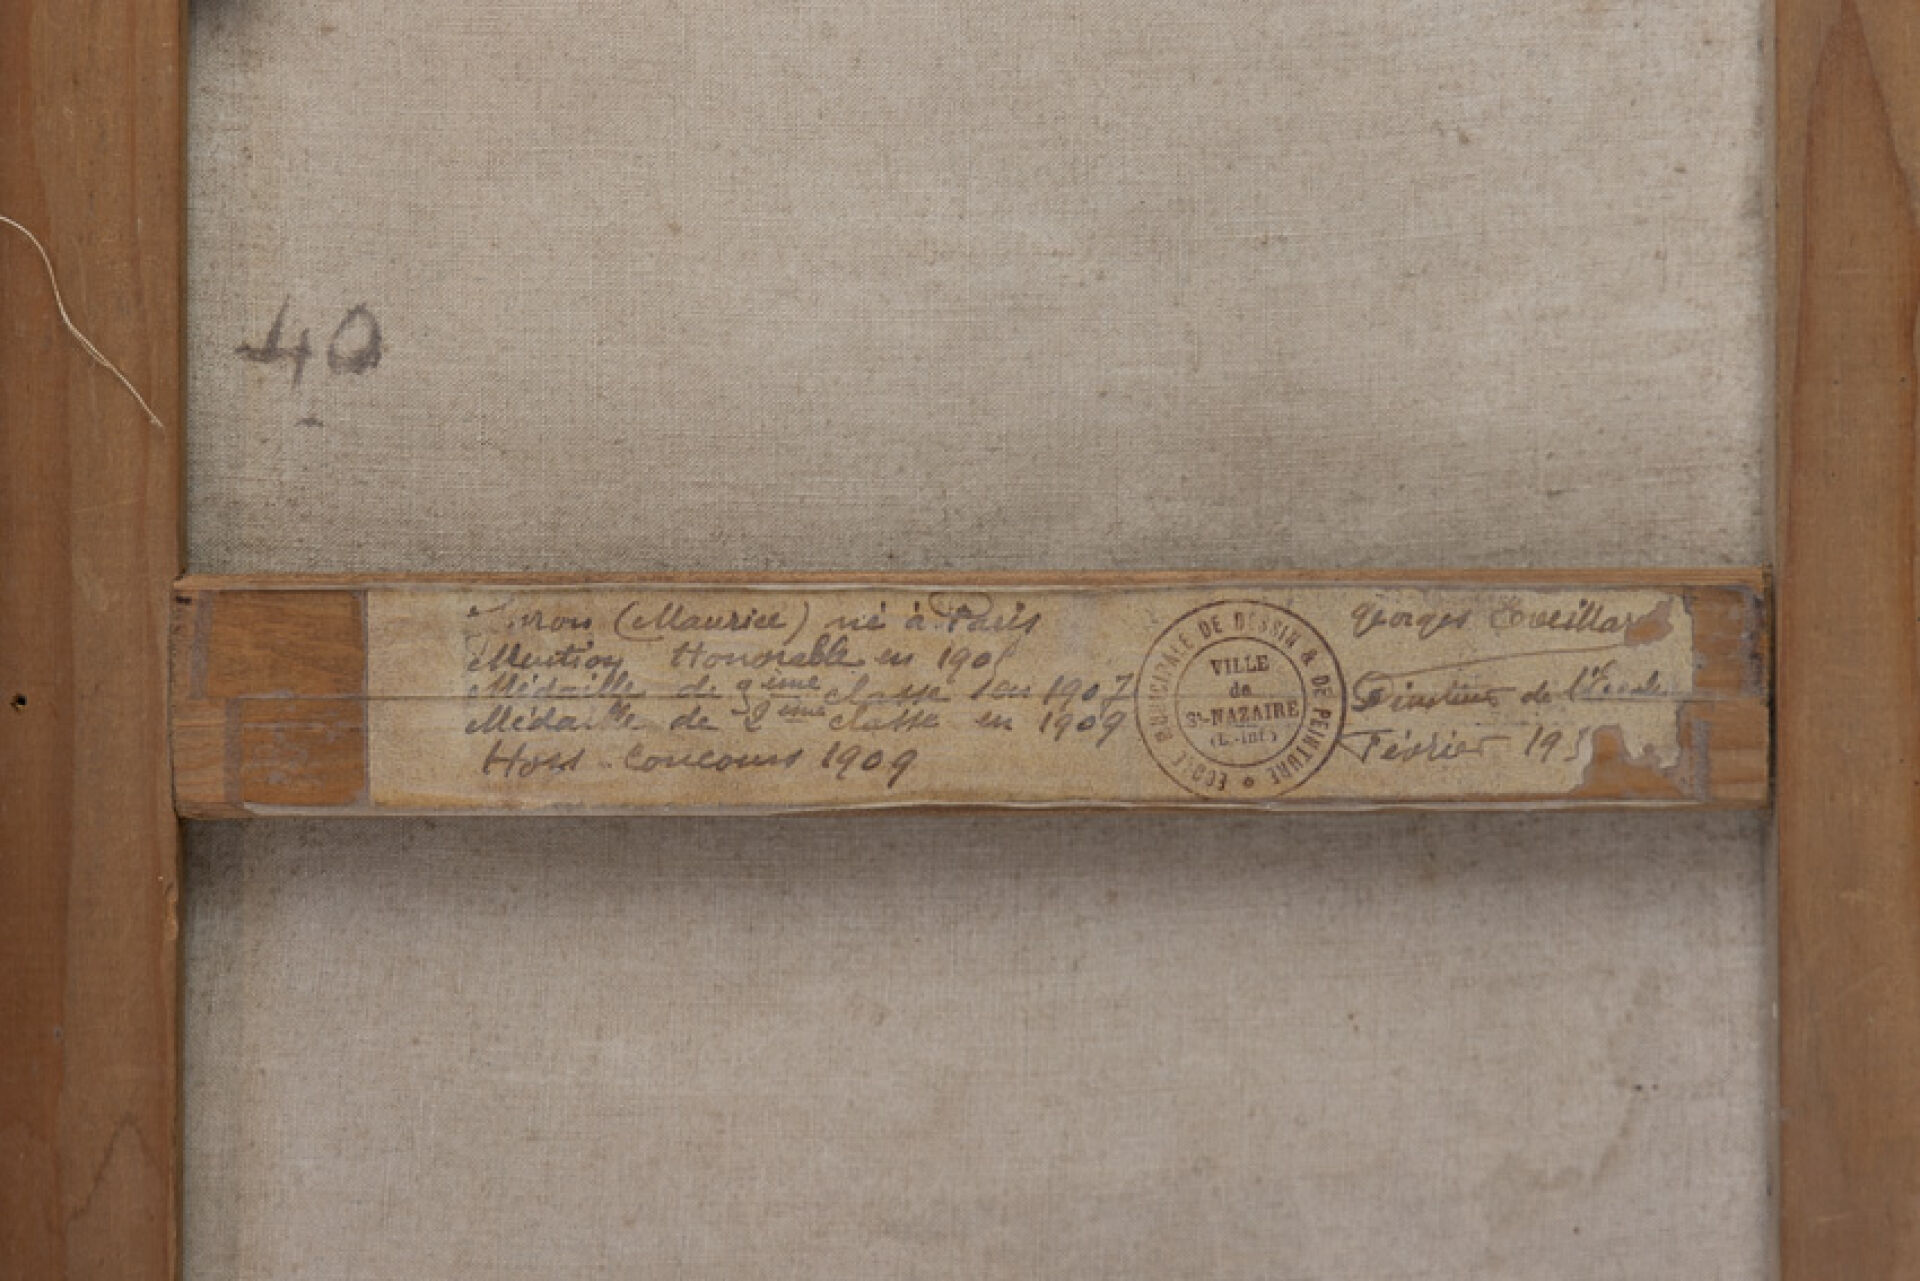 40
(Maurice) né à Paris
Mention Honorable en 190
Médaille de 3ème classe en 1907
Médaille de 2ème classe en 1909
Hors-Concours 1909
ECOLE MUNICIPALE DE DESSIN & DE PEINTURE
VILLE
de
St-NAZAIRE
(L.-Inf.)
Georges
Directeur de l'Ecole
Février 19